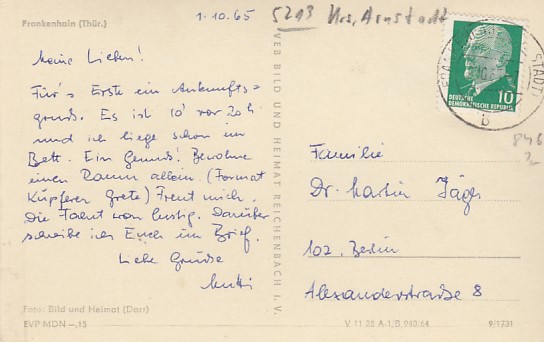 Frankenhain (Thür.)
1.10.65
5213 Krs. Arnstadt
Meine Lieben!
Für's Erste ein Ankunfts-
gruß. Es ist 10' vor 20h
und ich liege schon im
Bett. Ein Genuß! Bewohne
einen Raum allein. (Format
Küpferen Grete) Freut mich.
Die Fahrt war lustig. Darüber
schreibe ich Euch im Brief.
Liebe Grüße
Mutti
Foto: Bild und Heimat (Darr)
EVP MDN –,15
VEB BILD UND HEIMAT REICHENBACH I. V.
10
DEUTSCHE
DEMOKRATISCHE REPUBLIK
STADT
b
846
Familie
Dr. Martin Jäger
102. Berlin
Alexanderstraße 8
9/1731